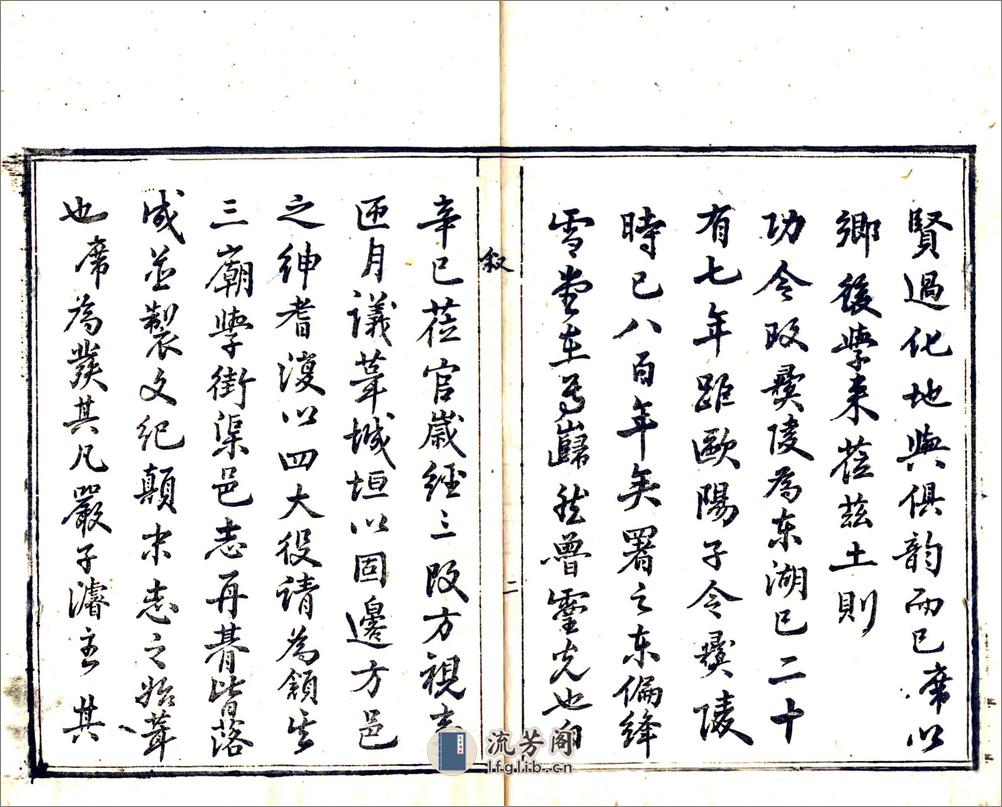 賢過化地與俱韵而已席以
鄉後學来蒞兹土則
功令改彛陵為东湖已二十
有七年距歐陽子令彛陵
時已八百年矣署之东偏絳
雪堂在焉巋然魯靈光也
叙
二
辛巳蒞官歲經三改方視事
匝月議葺城垣以固邊方邑
之紳耆復以四大役請為領之
三廟學街渠邑志再朞皆落
成並製文紀顛末志之始葺
也席為發其凡嚴子濬主其
流芳阁
lfglib.cn